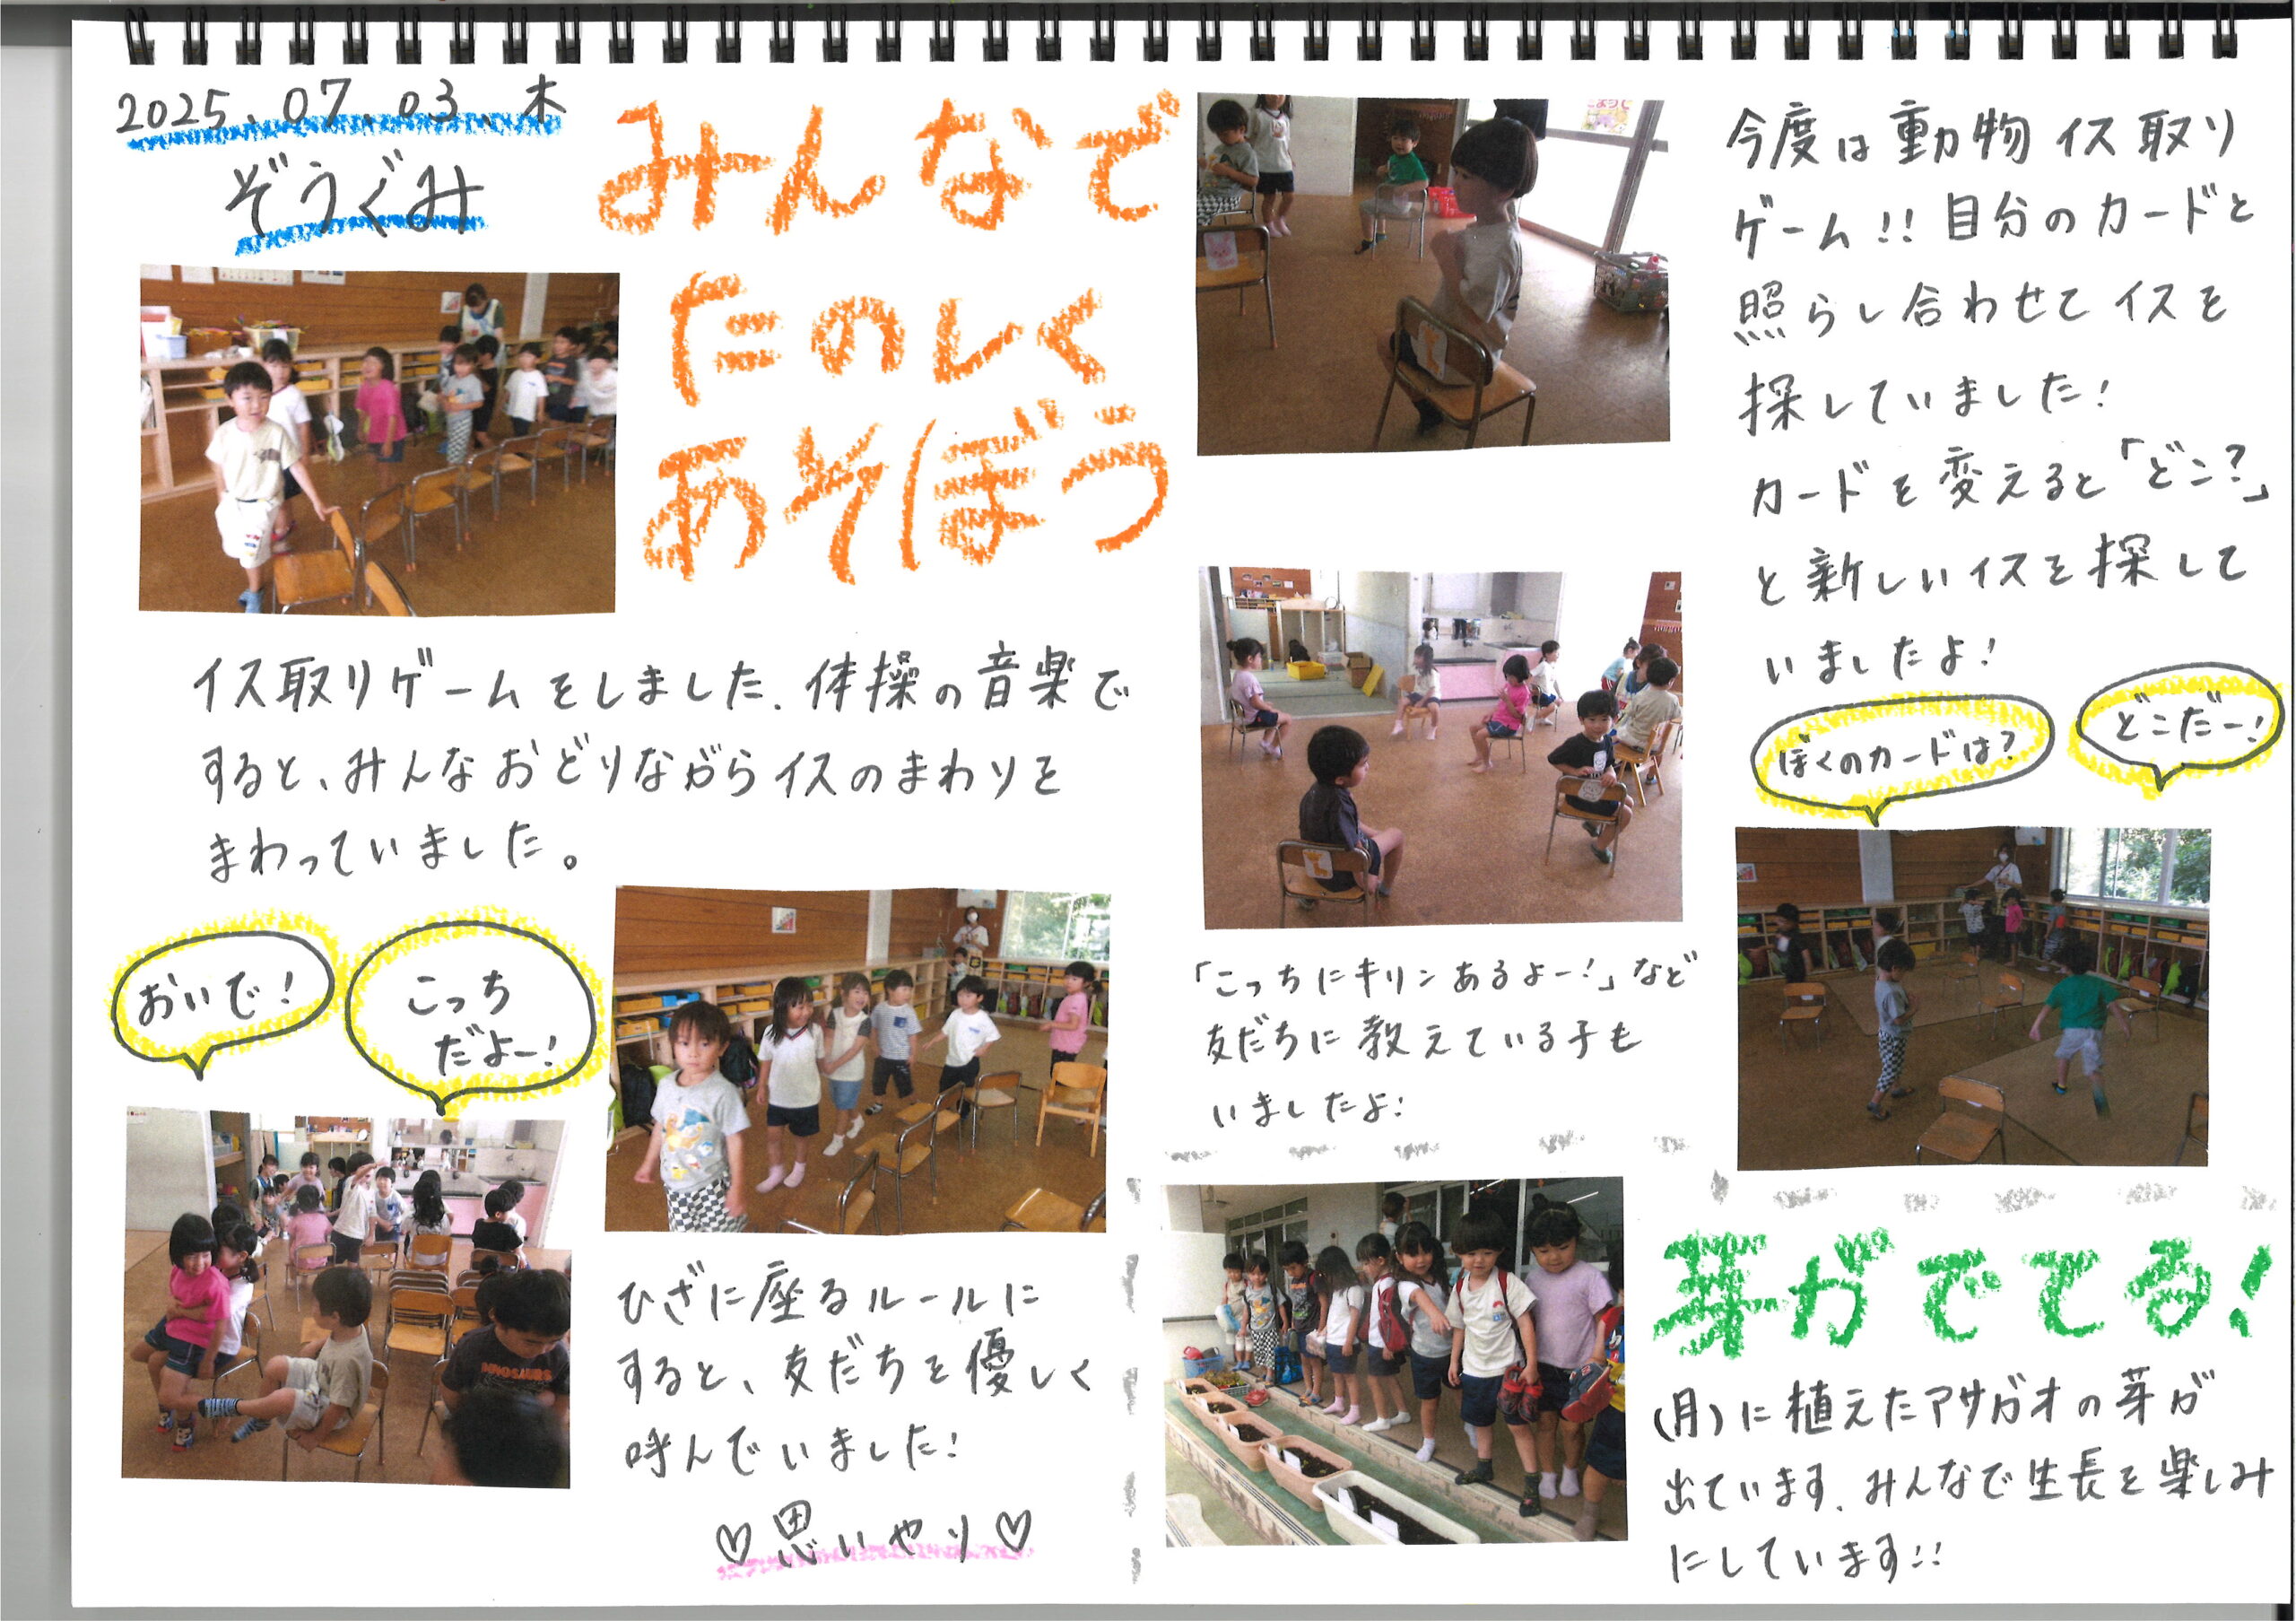 2025.07.03.木
ぞうぐみ
みんなで
たのしく
あそぼう
イス取りゲームをしました。体操の音楽で
すると、みんなおどりながらイスのまわりを
まわっていました。
おいで!
こっち
だよー!
ひざに座るルールに
すると、友だちを優しく
呼んでいました!
♡思いやり♡
今度は動物イス取り
ゲーム!!自分のカードと
照らし合わせてイスを
探していました!
カードを変えると「どこ?」
と新しいイスを探して
いましたよ!
ぼくのカードは?
どこだー!
「こっちにキリンあるよー!」など
友だちに教えている子も
いましたよ!
芽がでてる!
(月)に植えたアサガオの芽が
出ています。みんなで生長を楽しみ
にしています!!
DINOSAURS